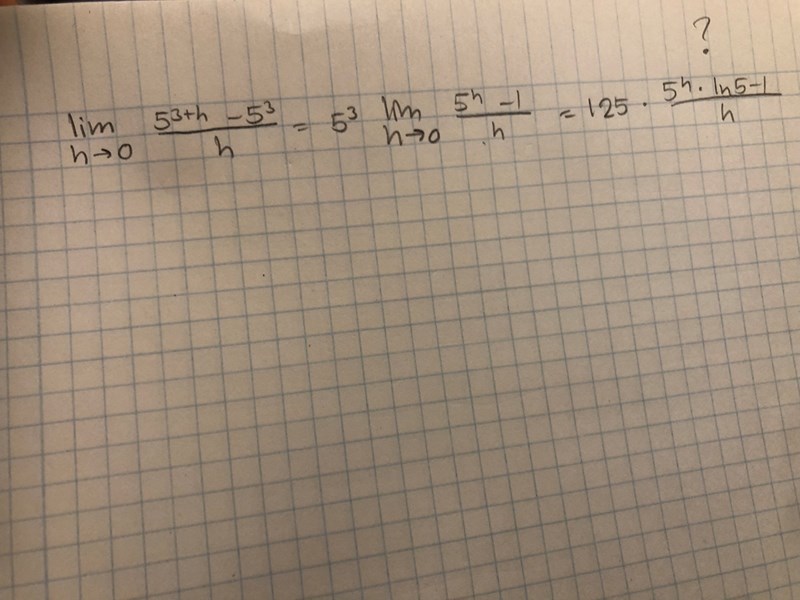 ?
lim h→0 (5^(3+h) - 5^3)/h = 5^3 lim h→0 (5^h - 1)/h = 125 · (5^h · ln5-1)/h